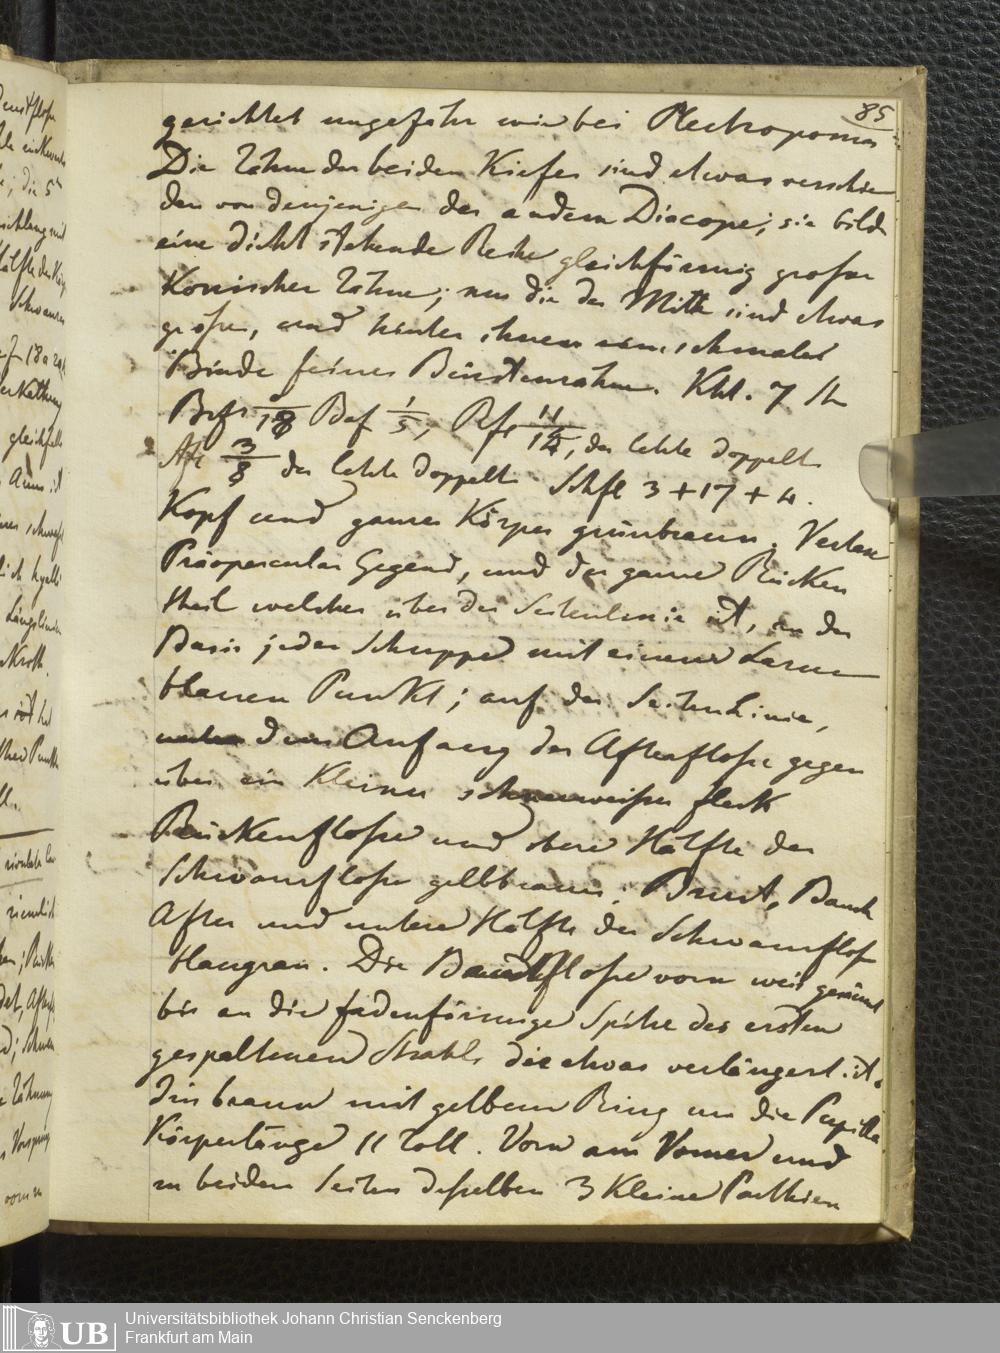 85
gerichtet ungefähr wie bei Plectropoma
Die Zähne der beiden Kiefer sind etwas verschie
den von denjenigen der andern Diacope; sie bilden
eine dicht stehende Reihe gleichförmig grosser
Konischer Zähne; nur die der Mitte sind etwas
grösser, und hinter ihnen eine schmale
Binde feiner Bürstenzähne. Khl. 7 Str
Brfs Baf 1/5, Rfs 11/14, der letzte doppelt
Afs 3/8 der letzte doppelt Schfl 3 + 17 + 4.
Kopf und ganzer Körper grünbraun.
Präopercular Gegend, und der ganze Rücken
theil welcher über der Seitenlinie ist, an der
Basis jeder Schuppe mit einem Lasur
blauen Punkt; auf der Seiten Linie,
dem Anfang der Afterflosse gegen
über ein Kleiner schneeweisser fleck
Rückenflosse und obere Hälfte der
Schwanzflosse gelbbraun; Brust, Bauch
After und untere Hälfte der Schwanzflosse
blaugrau. Die Bauchflosse vorn weis gesäumt
bis an die fadenförmige Spitze des ersten
gespaltenen Strahls die etwas verlängert ist.
Iris braun mit gelbem Ring um die Pupille
Körperlänge 11 Zoll. Vorn am Vomer und
zu beiden Seiten desselben 3 Kleine Parthien
UB
Universitätsbibliothek Johann Christian Senckenberg
Frankfurt am Main